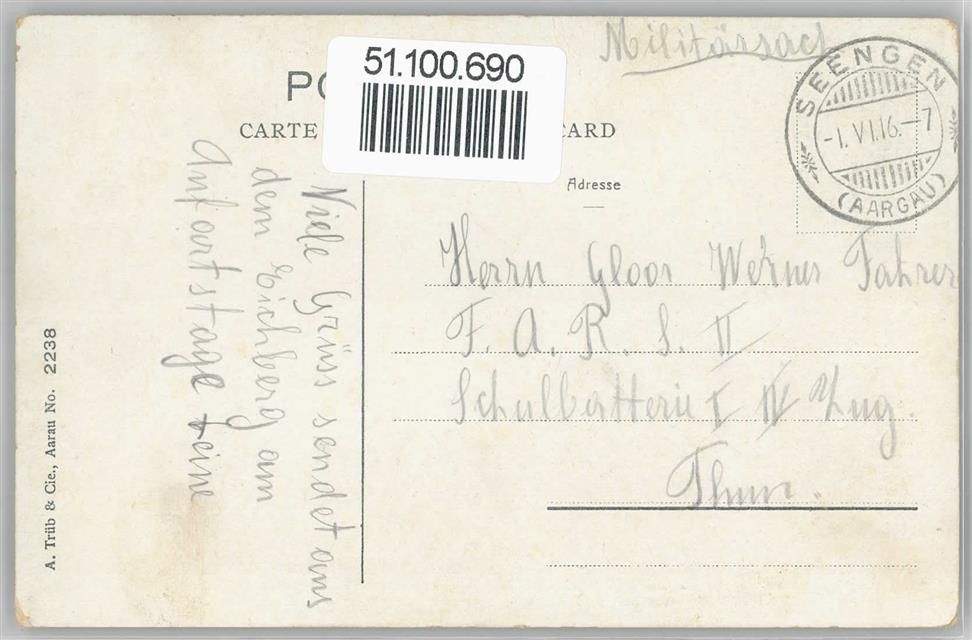 51.100.690
Militärsach
SEENGEN
-1.VI.16.-7
(AARGAU)
CARTE
CARD
Adresse
Herrn Gloor Werner Fahrer
F. A. R. S. II
Schulbatterie I IV Zug.
Thun.
Viele Grüss sendet aus
dem Eichberg am
Anfartstage eine
A. Trüb & Cie., Aarau No. 2238